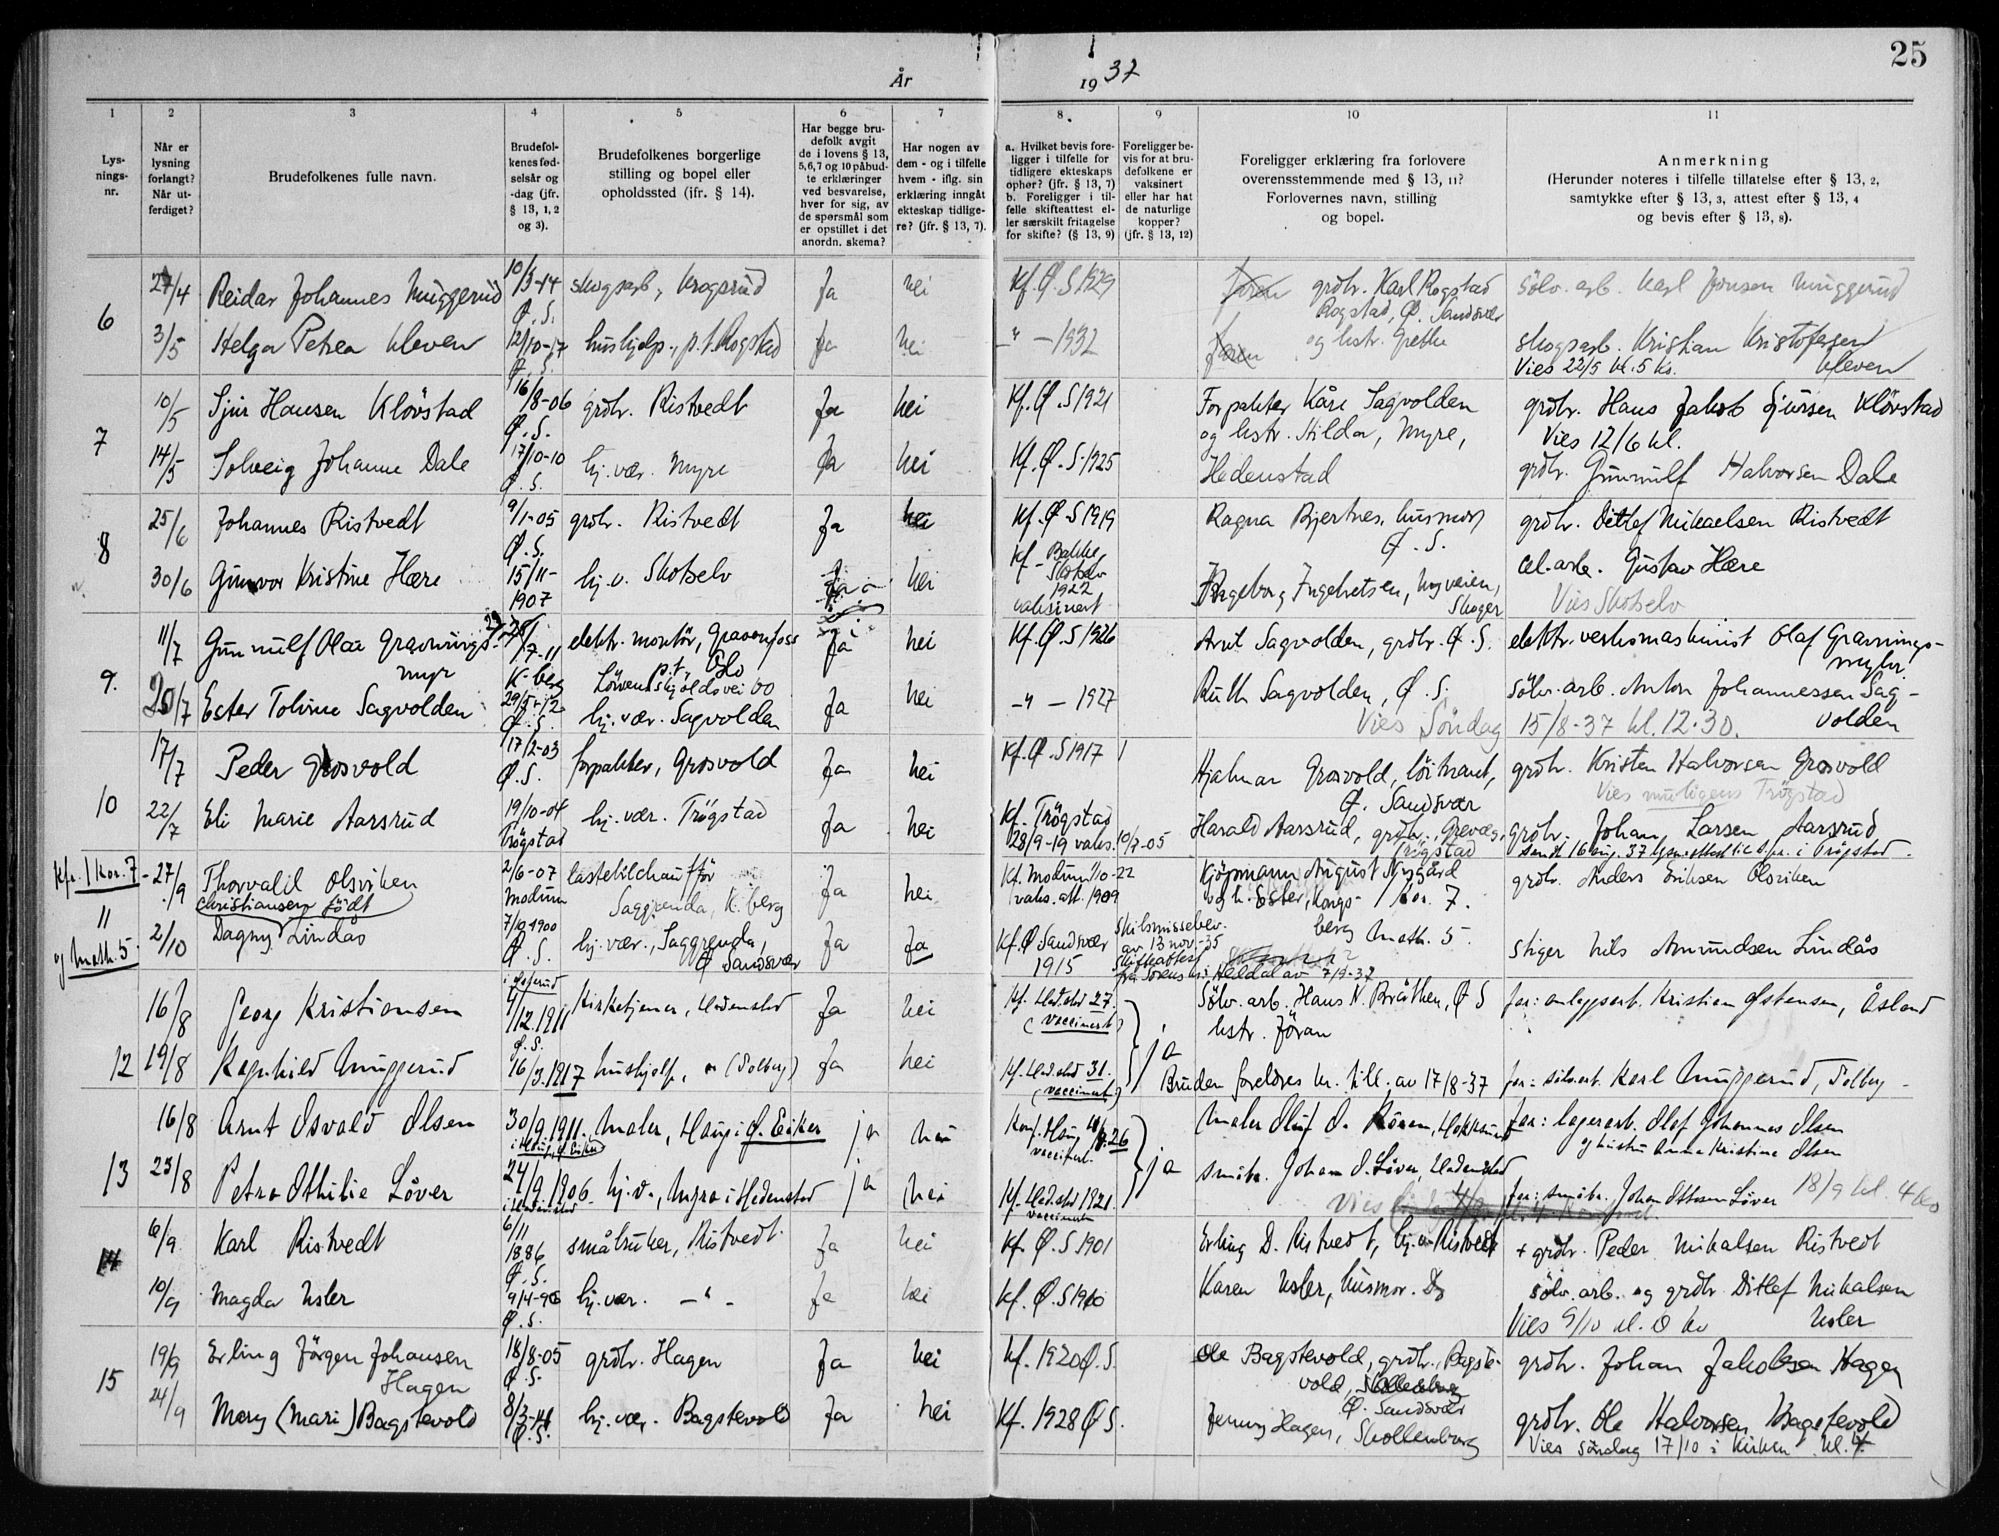 25
År 1937
1
Lysningsnr.
2
Når er lysning forlangt? Når utferdiget?
3
Brudefolkenes fulle navn.
4
Brudefolkenes fødselsår og -dag (jfr. § 13, 1, 2 og 3).
5
Brudefolkenes borgerlige stilling og bopel eller opholdssted (ifr. § 14).
6
Har begge brudefolk avgit de i lovens § 13, 5, 6, 7 og 10 påbudte erklæringer ved besvarelse, hver for sig, av de spørsmål som er opstillet i det anordn. skema?
7
Har nogen av dem - og i tilfelle hvem - iflg. sin erklæring inngåt ekteskap tidligere? (jfr. § 13, 7).
8
a. Hvilket bevis foreligger i tilfelle for tidligere ekteskaps ophør? (jfr. § 13, 7) b. Foreligger i tilfelle skifteattest eller særskilt fritagelse for skifte? (§ 13, 9)
9
Foreligger bevis for at brudefolkene er vaksinert eller har hat de naturlige kopper? (jfr. § 13, 12)
10
Foreligger erklæring fra forlovere overensstemmende med § 13, 11? Forlovernes navn, stilling og bopel.
11
Anmerkning (Herunder noteres i tilfelle tillatelse efter § 13, 2, samtykke efter § 13, 3, attest efter § 13, 4 og bevis efter § 13, 8).
6
27/4 Reidar Johannes Muggerud 10/3-14 Ø.S. skogsarb., Krogsrud Ja nei Kf. Ø.S 1929 grdbr. Karl Rogstad Rogstad, Ø. Sandsvær sølv.arb. Karl Jonsen Muggerud
3/5 Helga Petrea Kleven 12/10-17 Ø.S. hushjelp, p.t. Rogstad Ja nei -"- 1932 og hstr. Grethe skogsarb. Kristian Kristofersen Kleven
Vies 22/5 kl. 5
7
10/5 Sjur Hansen Kløvstad 16/8-06 Ø.S. grdbr. Ristvedt Ja nei Kf. Ø.S 1921 Forpakter Kåre Sagvolden og hstr. Hilda, Myre, grdbr. Hans Jakob Sjursen Kløvstad
Vies 12/6 kl.
14/5 Solveig Johanne Dale 17/10-10 Ø.S. hj.vær. Myre Ja nei Kf. Ø.S. 1925 Hedenstad grdbr. Gunnulf Halvorsen Dale
8
25/6 Johannes Ristvedt 9/1-05 Ø.S. grdbr. Ristvedt Ja nei Kf. Ø.S 1919 Ragna Bjertnes, husmor Ø.S. grdbr. Ditlef Mikaelsen Ristvedt
30/6 Gunvor Kristine Hære 15/11-1907 hj.v. Skotselv nei Kf. Bakke Skotselv 1922 vaksinert Ingeborg Ingebretsen, Myveien, Skoger cel.arb. Gustav Hære
Vies Skotselv
9.
11/7 Gunnulf Olaf Gravningsmyr 7-11 K-berg elektr. montør, Gravenfoss p.t. Oslo Løvenskjoldsvei Ja nei Kf. Ø.S 1926 Arnt Sagvolden, grdbr. Ø.S. elektr.verksmaskinist Olaf Gravningsmyhr.
20/7 Ester Toline Sagvolden 29/5-12 Ø.S. hj.vær. Sagvolden Ja nei -"- 1927 Ruth Sagvolden, Ø.S. sølv.arb. Anton Johannessen Sagvolden
Vies Søndag 15/8-37 kl. 12.30.
10
17/7 Peder Grosvold 17/2-03 Ø.S. forpakter, Grosvold Ja nei Kf. Ø.S 1917 Hjalmar Grosvold, løitnant, Ø. Sandsvær grdbr. Kristen Halvorsen Grosvold
Vies muligens Trøgstad
22/7 Eli Marie Aarsrud 19/10-04 Trøgstad hj.vær. Trøgstad Ja nei Kf. Trøgstad 28/9-19 vaks. 10/7-05 Harald Aarsrud, grdbr., Trøgstad grdbr. Johan Larsen Aarsrud
Kfr. 1 Kor. 7 - 11 og Math. 5.
27/9 Thorvald Olsviken 2/6-07 Modum lastebilchauffør Saggrenda, K.berg Ja nei Kf. Modum 1/10-22 vaks.att. 1909 Kjøpmann August Nygård og h. Ester, Kongsberg 1 Kor. 7. Math. 5. grdbr. Anders Eriksen Olsviken
Christiansen født
2/10 Dagny Lindås 7/10 1900 Ø.S. hj.vær., Saggrenda, Ø Sandsvær Ja Ja Kf. Ø Sandsvær 1915 Skilsmissebev. av 13 nov.-35 Skifteattest fra Sorenskr. i Heddal av 7/9-37 stiger Nils Amundsen Lindås
12
16/8 Georg Kristiansen 4/12.1911 Ø.S. Kirketjener, Hedenstad Ja nei Kf. Hed.stad 27. (vaccinert) ja Sølv.arb. Hans N. Bråthen, Ø S hstr. Jøran far: anleggsarb. Kristian Østensen, Åsland
19/8 Ragnhild Muggerud 16/3.1917 hushjelp, " (Solberg) Ja nei Kf. Hed.stad 31. (vaccinert) Bruden foreldres till. av 17/8-37 far: sølvarb. Karl Muggerud, Solberg
13
16/8 Arnt Osvald Olsen 30/9.1911. i Haug, Ø. Eiker Maler, Haug i Ø. Eiker ja nei Konf. Haug 26 vaccinert. ja Maler Oluf O. Røren, Hokksund far: lagerarb. Olaf Johannes Olsen og hustru Anna Kristine Olsen
23/8 Petra Othilie Løver 24/9 1906 i Hedenstad hj.v., Myra i Hedenstad ja nei Kf. Hed.stad 1921. vaccinert småbr. Johan O. Løver, Hedenstad far: småbr. Johan Ottesen Løver 18/9 kl. 4
14
6/9 Karl Ristvedt 6/11 1886 Ø.S. småbruker, Ristvedt. Ja nei Kf. Ø.S 1901 Erling D. Ristvedt, Ristvedt + grdbr. Peder Mikalsen Ristvedt
10/9 Magda Usler 9/4-96 Ø.S. hj.vær. -"- Ja nei Kf. Ø.S 1910 Karen Usler, husmor. Do sølv.arb. og grdbr. Ditlef Mikalsen Usler
Vies 9/10 kl.
15
19/9 Erling Jørgen Johansen Hagen 18/8-05 Ø.S. grdbr. Hagen Ja nei Kf. 1920 Ø.S. Ole Bagstevold, grdbr., Bagstevold, Ø. Sandsvær grdbr. Johan Jakobsen Hagen
24/9 Mary (Mari) Bagstevold Ø.S. hj.vær. Bagstevold Ja nei Kf. 1928 Ø S. Jenny Hagen, Skollenborg grdbr. Ole Halvorsen Bagstevold
Vies søndag 17/10 i kirken kl. 4.